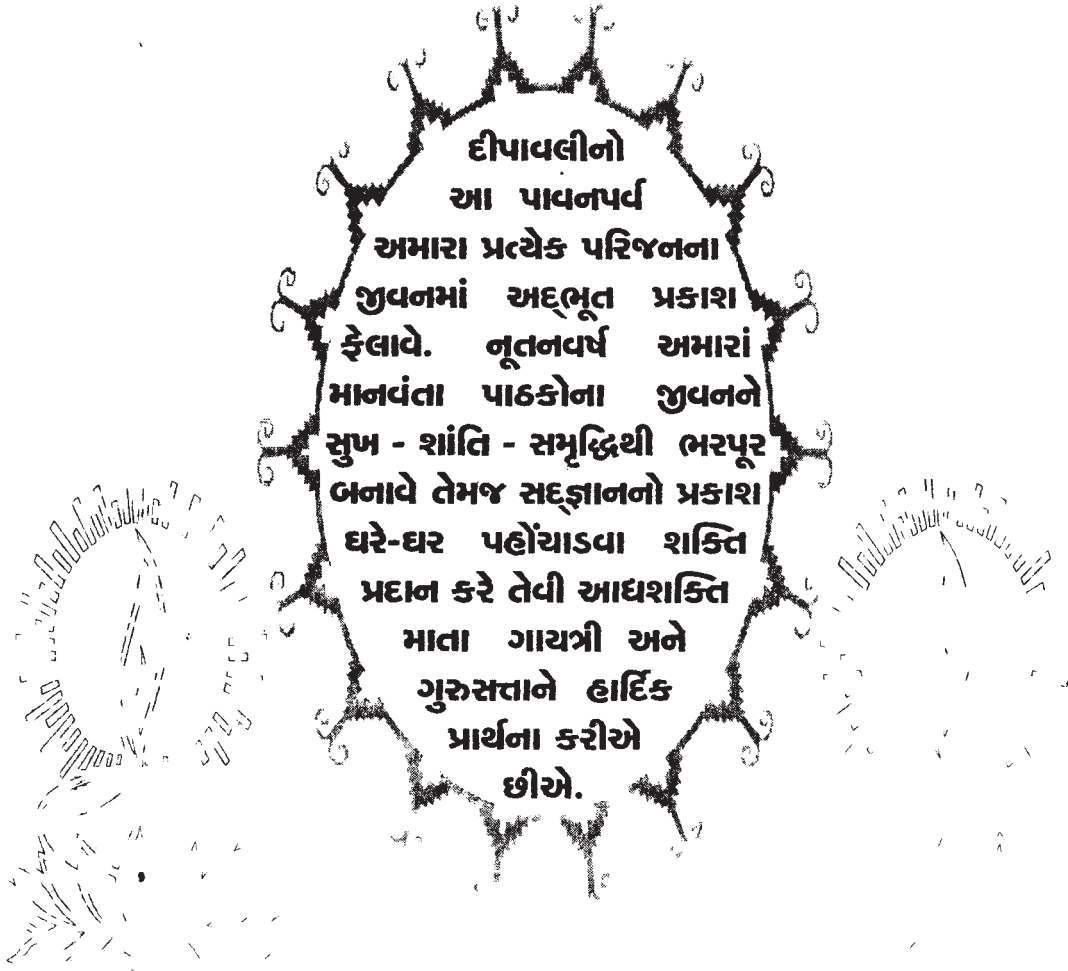 દીપાવલીનો
આ પાવનપર્વ
અમારા પ્રત્યેક પરિજનના
જીવનમાં અદ્‌ભૂત પ્રકાશ
ફેલાવે. નૂતનવર્ષ અમારાં
માનવંતા પાઠકોના જીવનને
સુખ - શાંતિ - સમૃદ્ધિથી ભરપૂર
બનાવે તેમજ સદ્‌જ્ઞાનનો પ્રકાશ
ઘરે-ઘર પહોંચાડવા શક્તિ
પ્રદાન કરે તેવી આદ્યશક્તિ
માતા ગાયત્રી અને
ગુરુસત્તાને હાર્દિક
પ્રાર્થના કરીએ
છીએ.